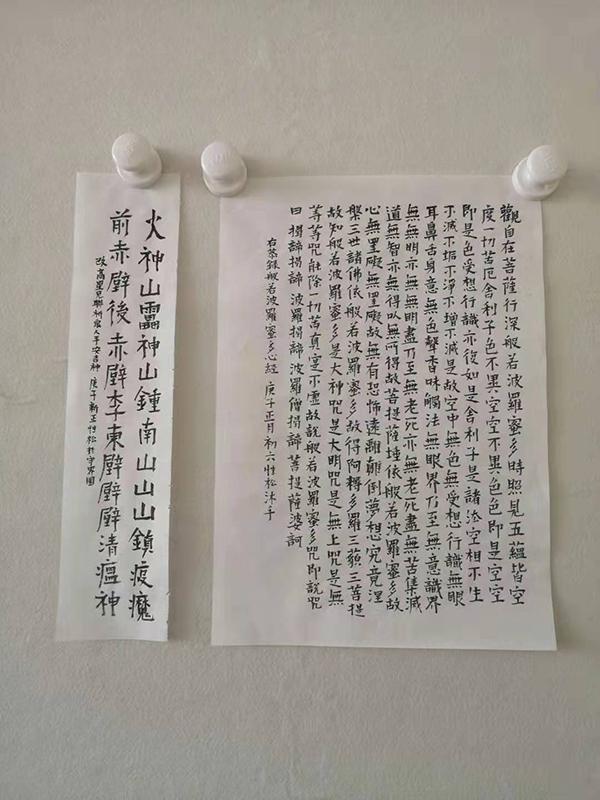 觀自在菩薩行深般若波羅蜜多時照見五蘊皆空
度一切苦厄舍利子色不異空空不異色色即是空空
即是色受想行識亦復如是舍利子是諸法空相不生
不滅不垢不淨不增不減是故空中無色無受想行識無眼
耳鼻舌身意無色聲香味觸法無眼界乃至無意識界
無無明亦無無明盡乃至無老死亦無老死盡無苦集滅
道無智亦無得以無所得故菩提薩埵依般若波羅蜜多故
心無罣礙無罣礙故無有恐怖遠離顛倒夢想究竟涅
槃三世諸佛依般若波羅蜜多故得阿耨多羅三藐三菩提
故知般若波羅蜜多是大神咒是大明咒是無上咒是無
等等咒能除一切苦真實不虛故說般若波羅蜜多咒即說咒
曰 揭諦揭諦 波羅揭諦 波羅僧揭諦 菩提薩婆訶
右恭錄般若波羅蜜多心經 庚子正月初六性松沐手
火神山靁神山鍾南山山山鎖疫魔
前赤壁後赤壁李東壁壁壁清瘟神
改高星兄聯祈眾人平安吉祥 庚子新正性松於守界園